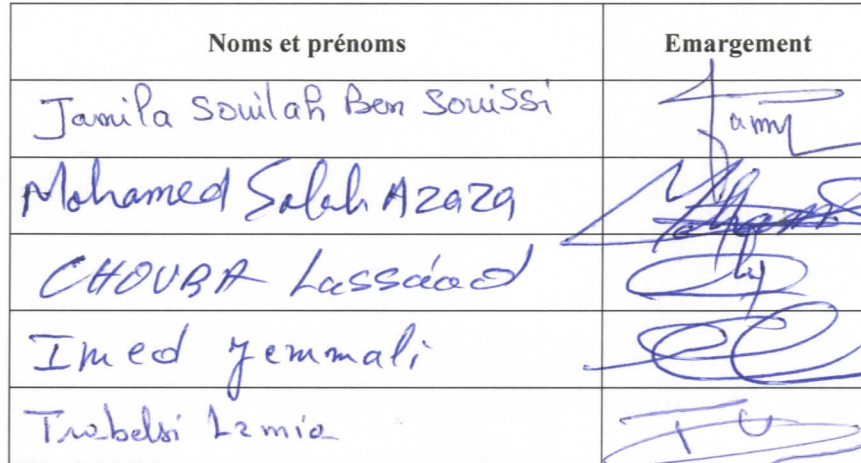 Noms et prénoms Emargement
Jamila Souilah Ben Souissi
Mohamed Salah Azaza
CHOUBA Lassâad
Imed Jemmali
Trabelsi Lamia